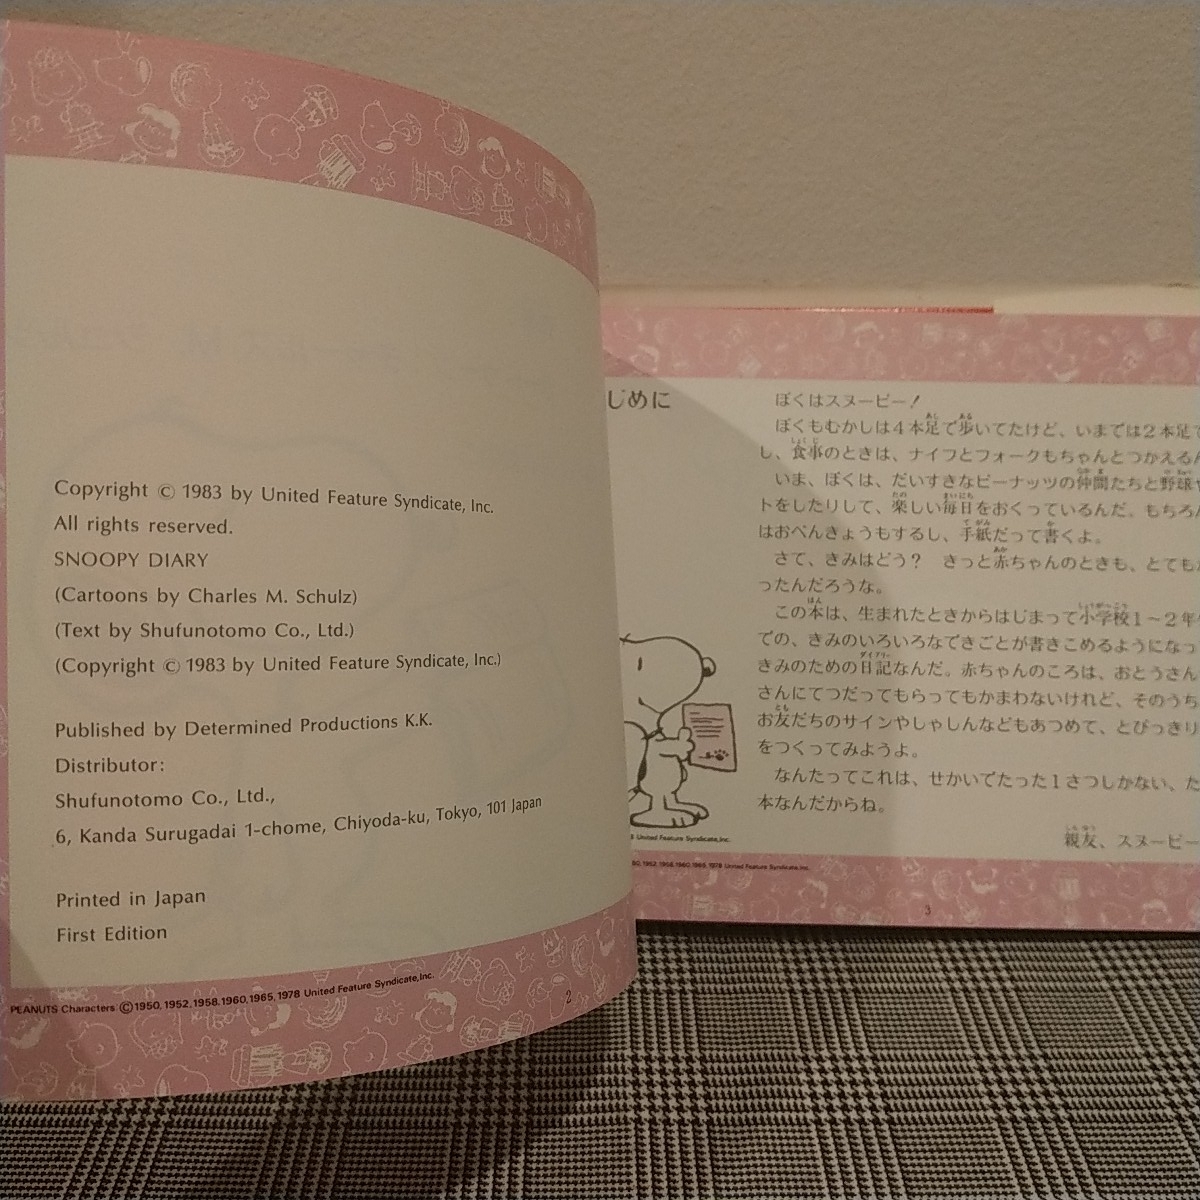 Copyright © 1983 by United Feature Syndicate, Inc.
All rights reserved.
SNOOPY DIARY
(Cartoons by Charles M. Schulz)
(Text by Shufunotomo Co., Ltd.)
(Copyright © 1983 by United Feature Syndicate, Inc.)
Published by Determined Productions K.K.
Distributor:
Shufunotomo Co., Ltd.,
6, Kanda Surugadai 1-chome, Chiyoda-ku, Tokyo, 101 Japan
Printed in Japan
First Edition
PEANUTS Characters ©1950, 1952, 1958, 1960, 1965, 1978 United Feature Syndicate, Inc.
2
じめに
ぼくはスヌーピー!
ぼくもむかしは4本足で歩いてたけど、いまでは2本足で
し、食事のときは、ナイフとフォークもちゃんとつかえるん
いま、ぼくは、だいすきなピーナッツの仲間たちと野球や
トをしたりして、楽しい毎日をおくっているんだ。もちろん
はおべんきょうもするし、手紙だって書くよ。
さて、きみはどう? きっと赤ちゃんのときも、とても
ったんだろうな。
この本は、生まれたときからはじまって小学校1～2年
での、きみのいろいろなできごとが書きこめるようになっ
きみのための日記なんだ。赤ちゃんのころは、おとうさん
さんにてつだってもらってもかまわないけれど、そのうち
お友だちのサインやしゃしんなどもあつめて、とびっきり
をつくってみようよ。
なんたってこれは、せかいでたった1さつしかない、た
本なんだからね。
親友、スヌーピー
United Feature Syndicate, Inc.
1952, 1958, 1960, 1965, 1978 United Feature Syndicate, Inc.
3